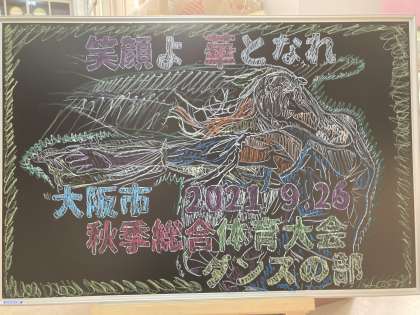 笑顔よ 華となれ
大阪市 2021.9.26
秋季総合体育大会
ダンスの部